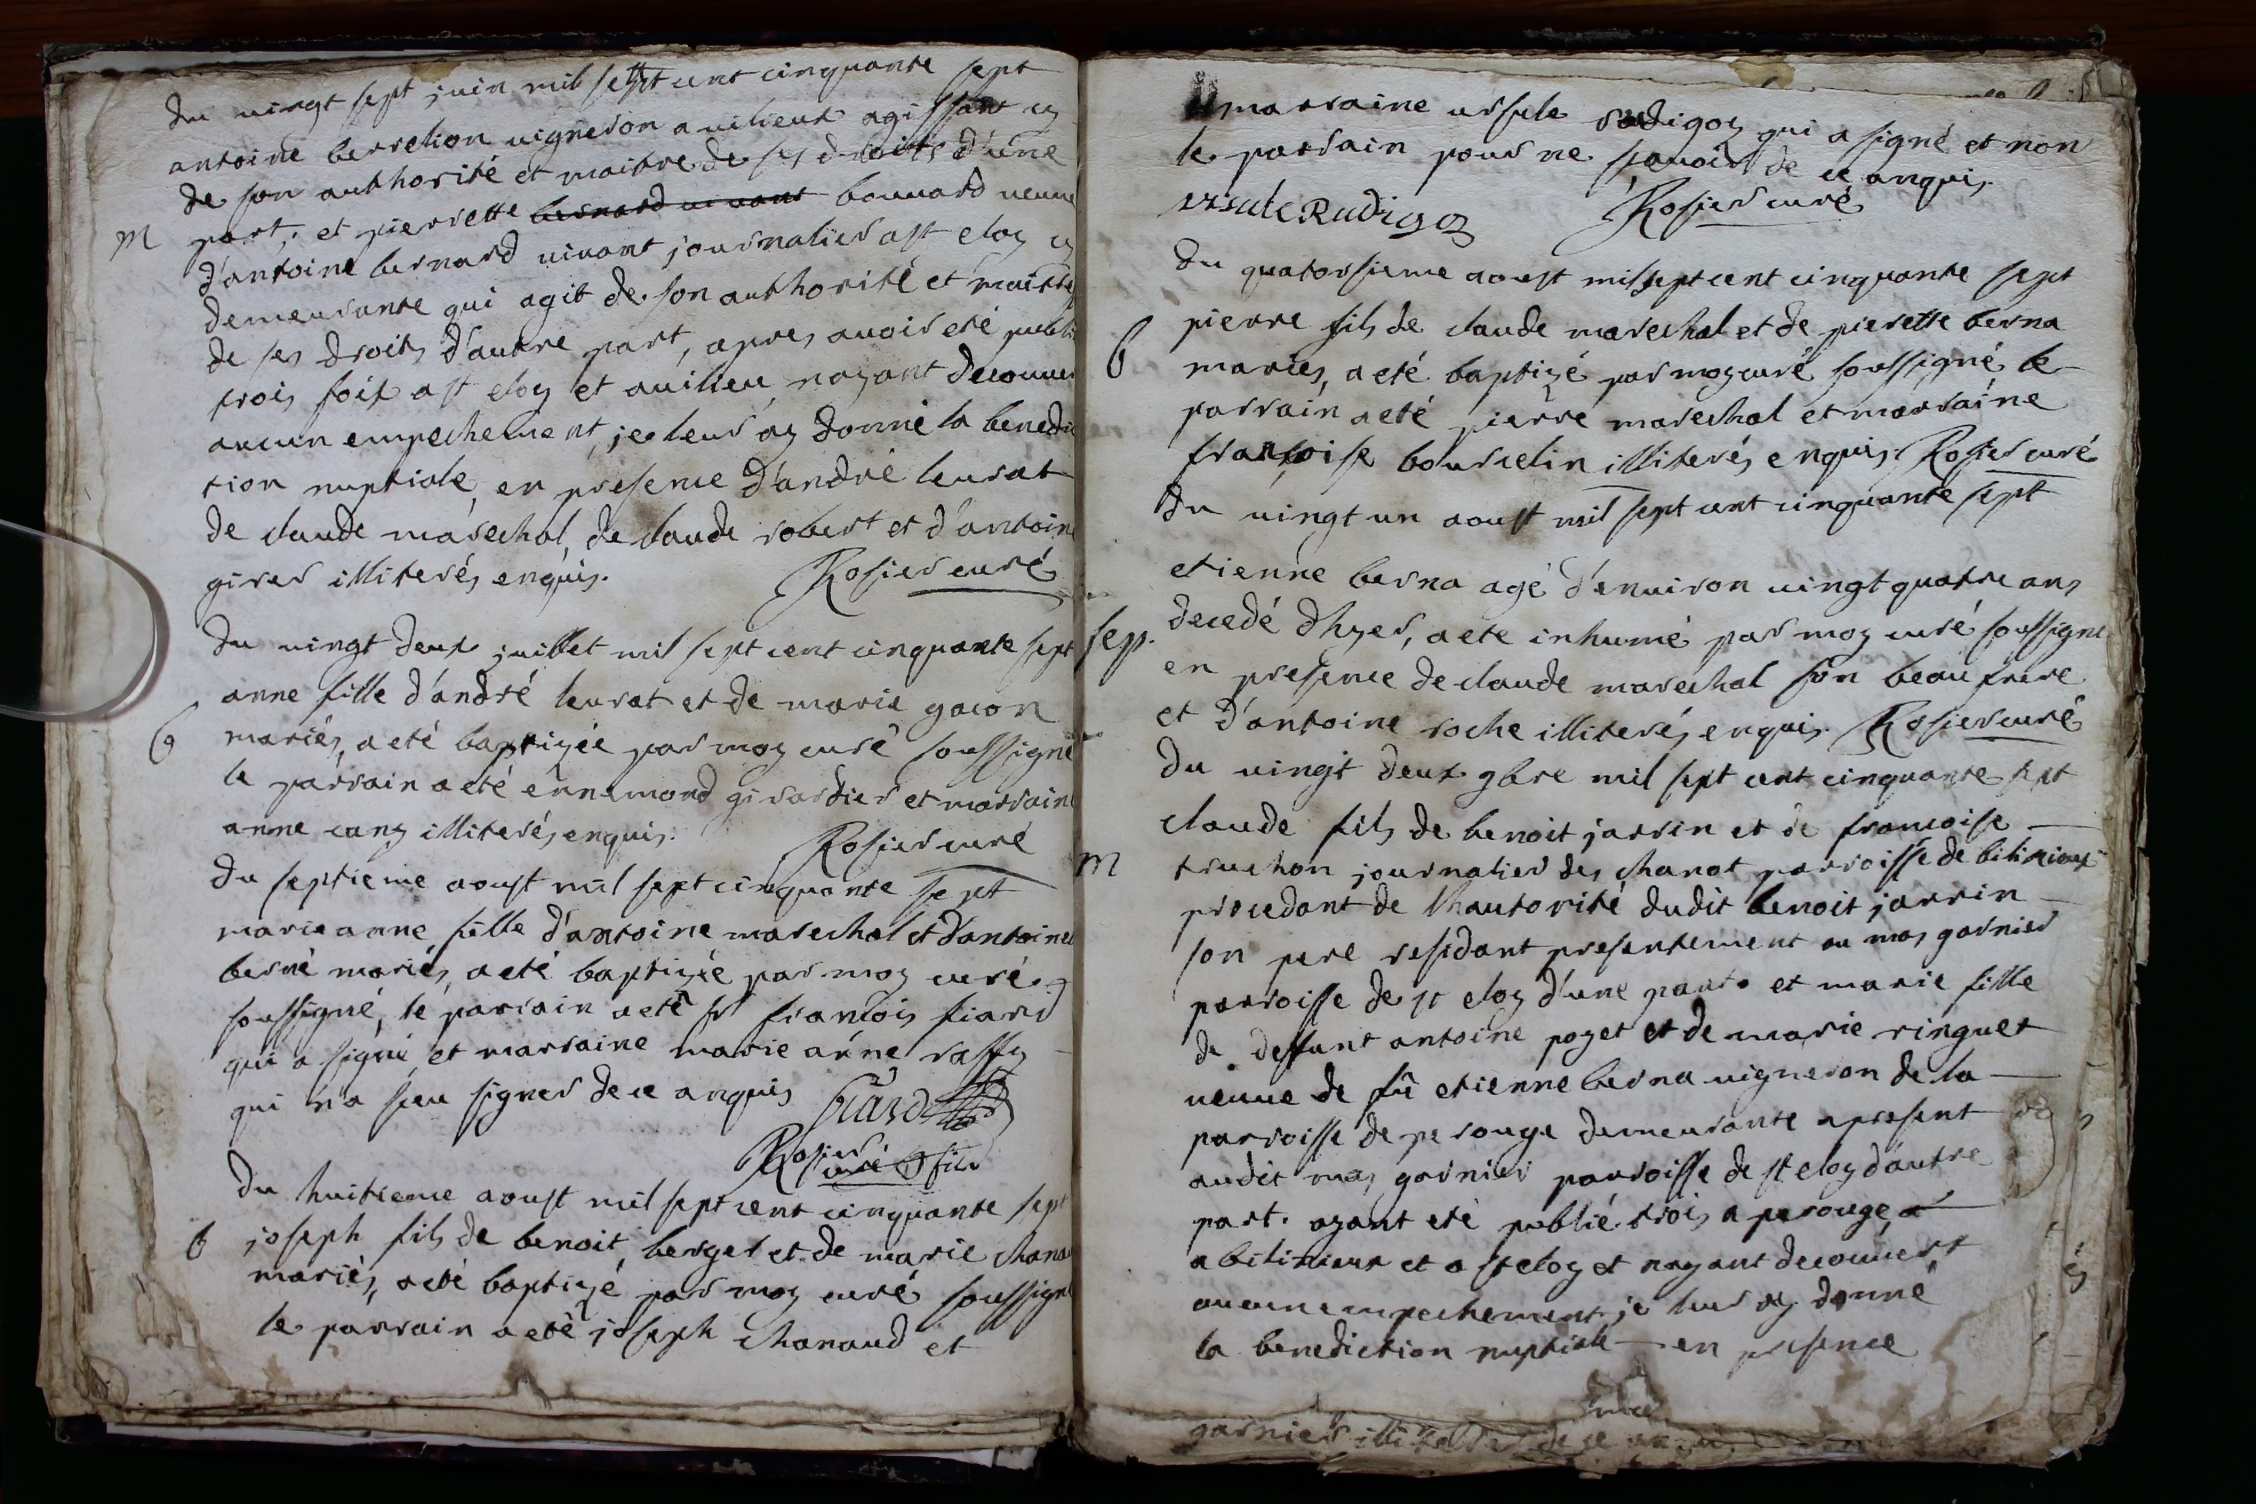 du vingt sept juin mil sept cent cinquante sept
antoine berrelion vigneron a vilieux agissant cy
de son authorité et maitre de ses droits d'une
m part, et pierrette bernard vivant bouvard veuve
d'antoine bernard vivant journalier a st eloy cy
demeurante qui agit de son authorité et maitre
de ses droits d'autre part, apres avoir eté publi
trois fois a st eloy et avilieu, nayant decouver
aucun empechement, je leur ay donné la benedic
tion nuptiale, en presence d'andré leurat
de claude maréchal, de claude robert et d'antoine
girer illiterés enquis. Rosier curé
du vingt deux juillet mil sept cent cinquante sept
anne fille d'andré leurat et de marie gacon
b mariés, a eté baptizée par moy curé soussigné
le parrain a eté ennemond girardier et marraine
anne cany illiterés enquis. Rosier curé
du septieme aoust mil sept cinquante sept
marie anne fille d'antoine marechal et d'antoine
berné mariés, a eté baptizée par moy curé
soussigné, le parrain a eté sr francois fiard
qui a signé et marraine marie anne raffy
qui n'a sceu signer de ce anquis fiard
Rosier curé
du huitieme aoust mil sept cent cinquante sept
b joseph fils de benoit berger et de marie chana
mariés, a eté baptizé par moy curé soussigné
le parrain a eté joseph chanaud et
marraine ursule rudigoz qui a signé et non
le parrain pour ne scavoir de ce anquis.
ursule Rudigoz Rosier curé
du quatorsieme aoust mil sept cent cinquante sept
pierre fils de claude marechal et de pierette berna
b mariés, a eté baptizé par moy curé soussigné le
parrain a eté pierre marechal et marraine
francoise bourcelin illiterés enquis. Rosier curé
du vingt un aoust mil sept cent cinquante sept
etienne berna agé d'environ vingt quatre ans
sep. decedé dhyer, a ete inhumé par moy curé soussigné
en presence de claude marechal son beau frere
et d'antoine roche illiterés enquis. Rosier curé
du vingt deux 9bre mil sept cent cinquante sept
claude fils de benoit jarrin et de francoise
m truchon journalier des chanot parroisse de bilinieux
procedant de lhautorité dudit benoit jarrin
son pere residant presentement au mas garnier
parroisse de st eloy d'une part et marie fille
de deffunt antoine poyet et de marie ringuet
veuve de fû etienne berna vigneron de la
parroisse de perouge demeurante apresent
audit mas garnier parroisse de st eloy d'autre
part. ayant eté publié trois a perouge, a
a bilinieux et a st eloy et nayant decouvert
aucun empechement, je leur ay donné
la benediction nuptiale en presence
garnier illiterés de ce